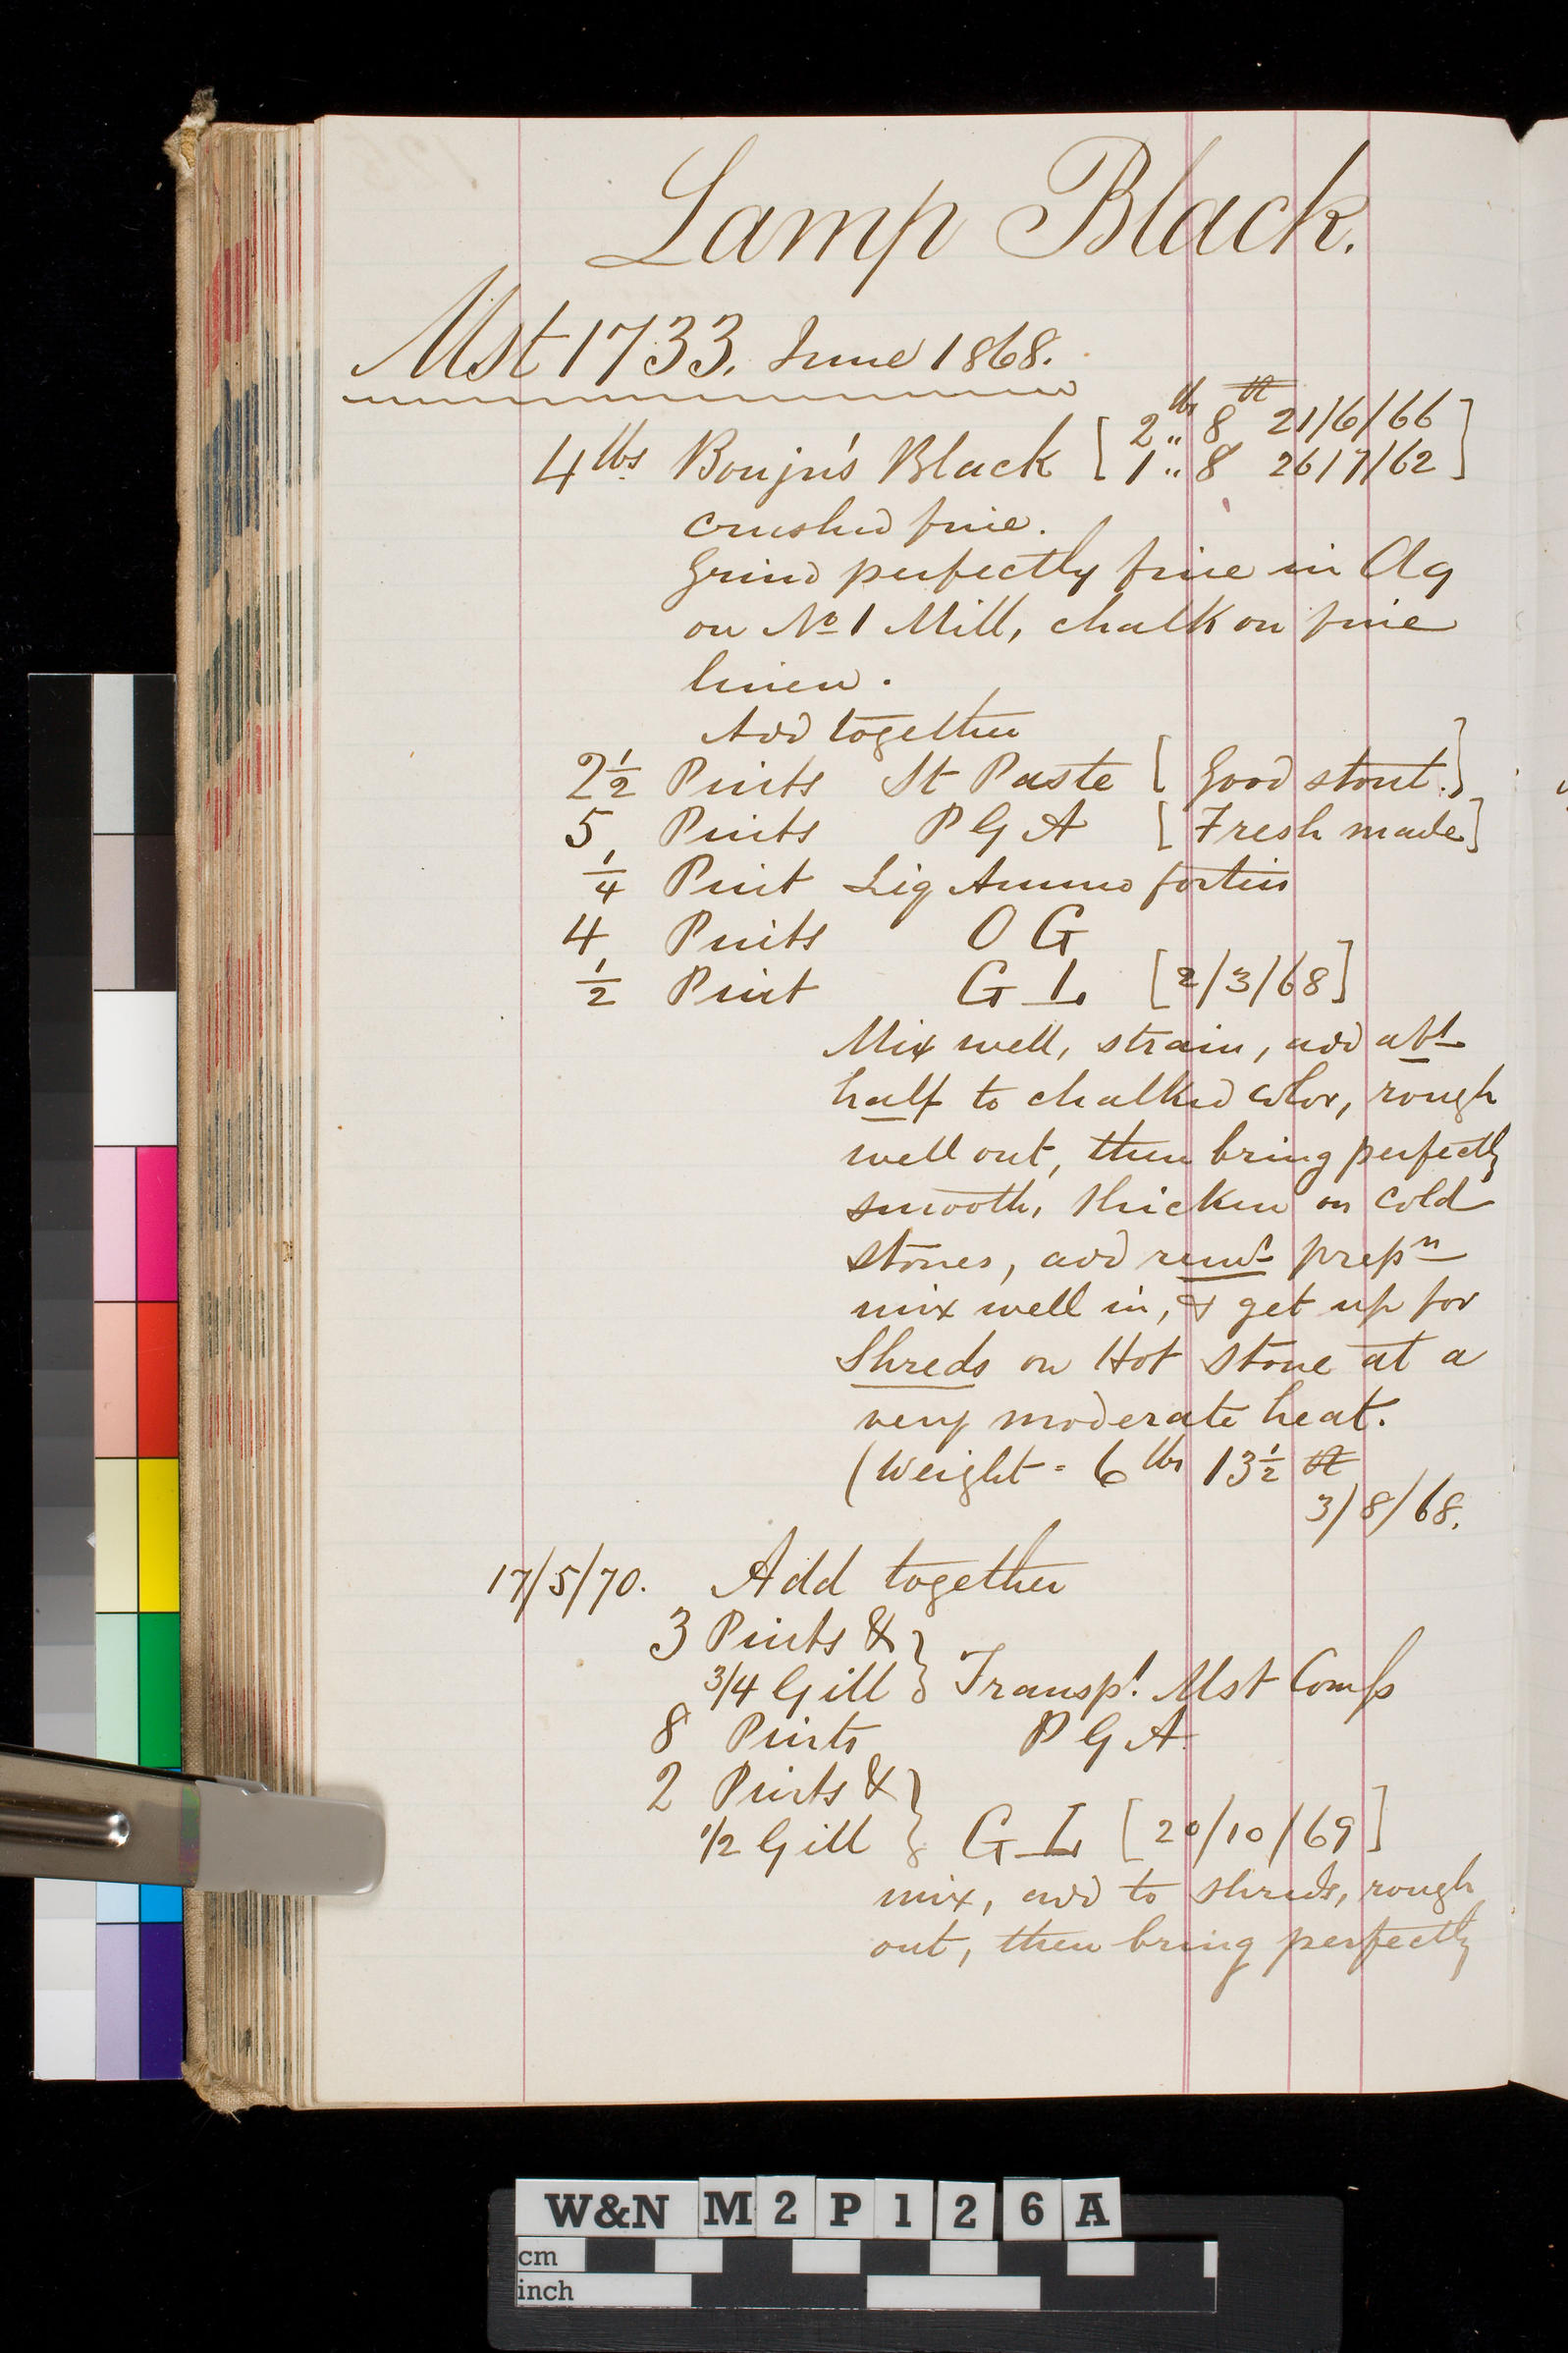 Lamp Black.
Mst 1733. June 1868.
4 lbs Bonjn's Black [ 2 lbs „ 8 oz 21/6/66
1 „ 8 26/7/62 ]
crushed fine.
Grind perfectly fine in Aq
on No 1 Mill, chalk on fine
linen.
Add together
2½ Pints St Paste [ Good stout. ]
5 Pints P G A [ Fresh made ]
¼ Pint Liq Ammo fortis
4 Pints O G
½ Pint G L [2/3/68]
Mix well, strain, add abt
half to chalked color, rough
well out, then bring perfectly
smooth, thicken on cold
stones, add remr prepn
mix well in, & get up for
Shreds on Hot Stone at a
very moderate heat.
(Weight = 6 lbs 13½ oz
3/8/68.
17/5/70. Add together
3 Pints &
3/4 Gill } Transpt. Mst Comp
8 Pints P G A
2 Pints &
1/2 Gill } G L [20/10/69]
mix, add to shreds, rough
out, then bring perfectly
W&N M2P126A
cm
inch